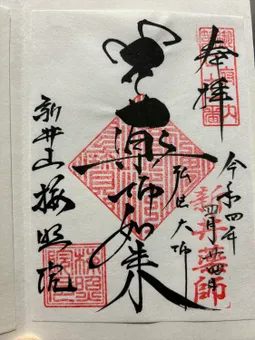 奉拝
令和四年
四月
新井薬師
弘法大師
薬師如来
新井山梅照院